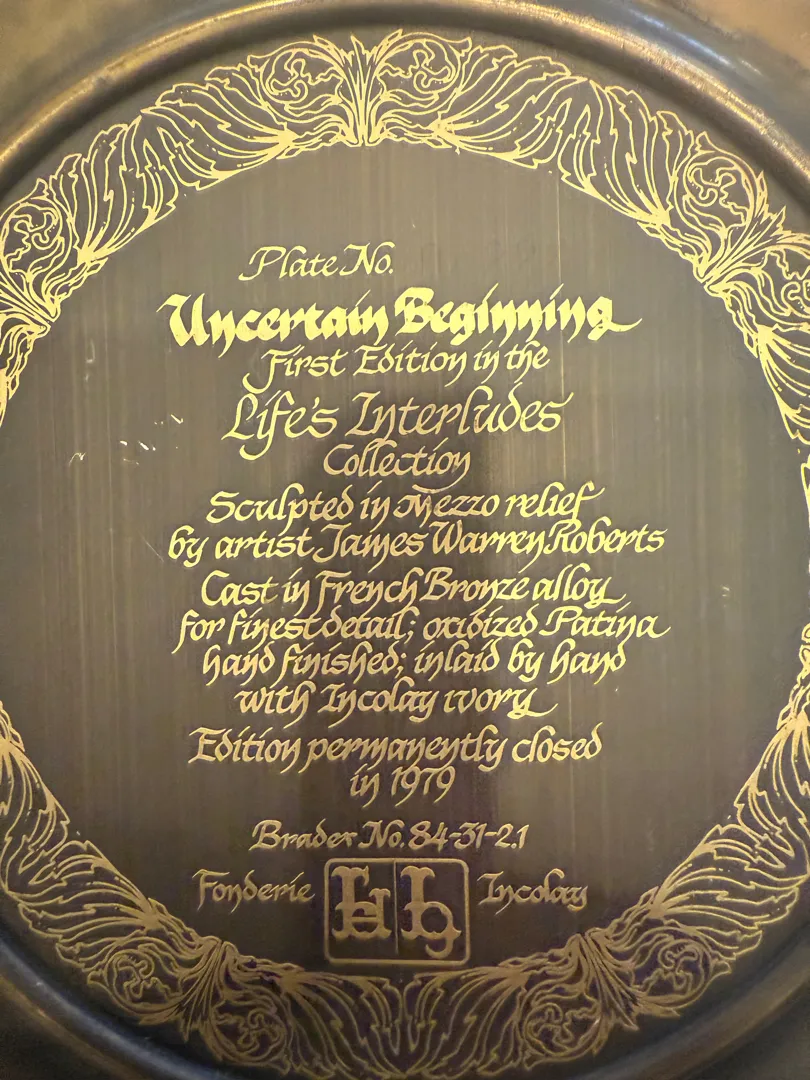 Plate No.
Uncertain Beginning
First Edition in the
Life's Interludes
Collection
Sculpted in Mezzo relief
by artist James Warren Roberts
Cast in French Bronze alloy
for finest detail; oxidized Patina
hand finished; inlaid by hand
with Incolay ivory
Edition permanently closed
in 1979
Bradex No. 84-31-2.1
Fonderie Incolay